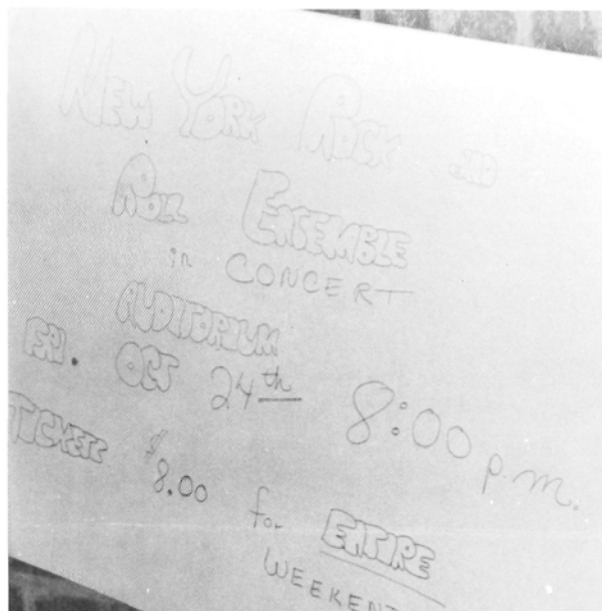 NEW YORK ROCK AND
ROLL ENSEMBLE
in CONCERT
AUDITORIUM
FRI. OCT 24th 8:00 p.m.
TICKETS $8.00 for ENTIRE
WEEKEND